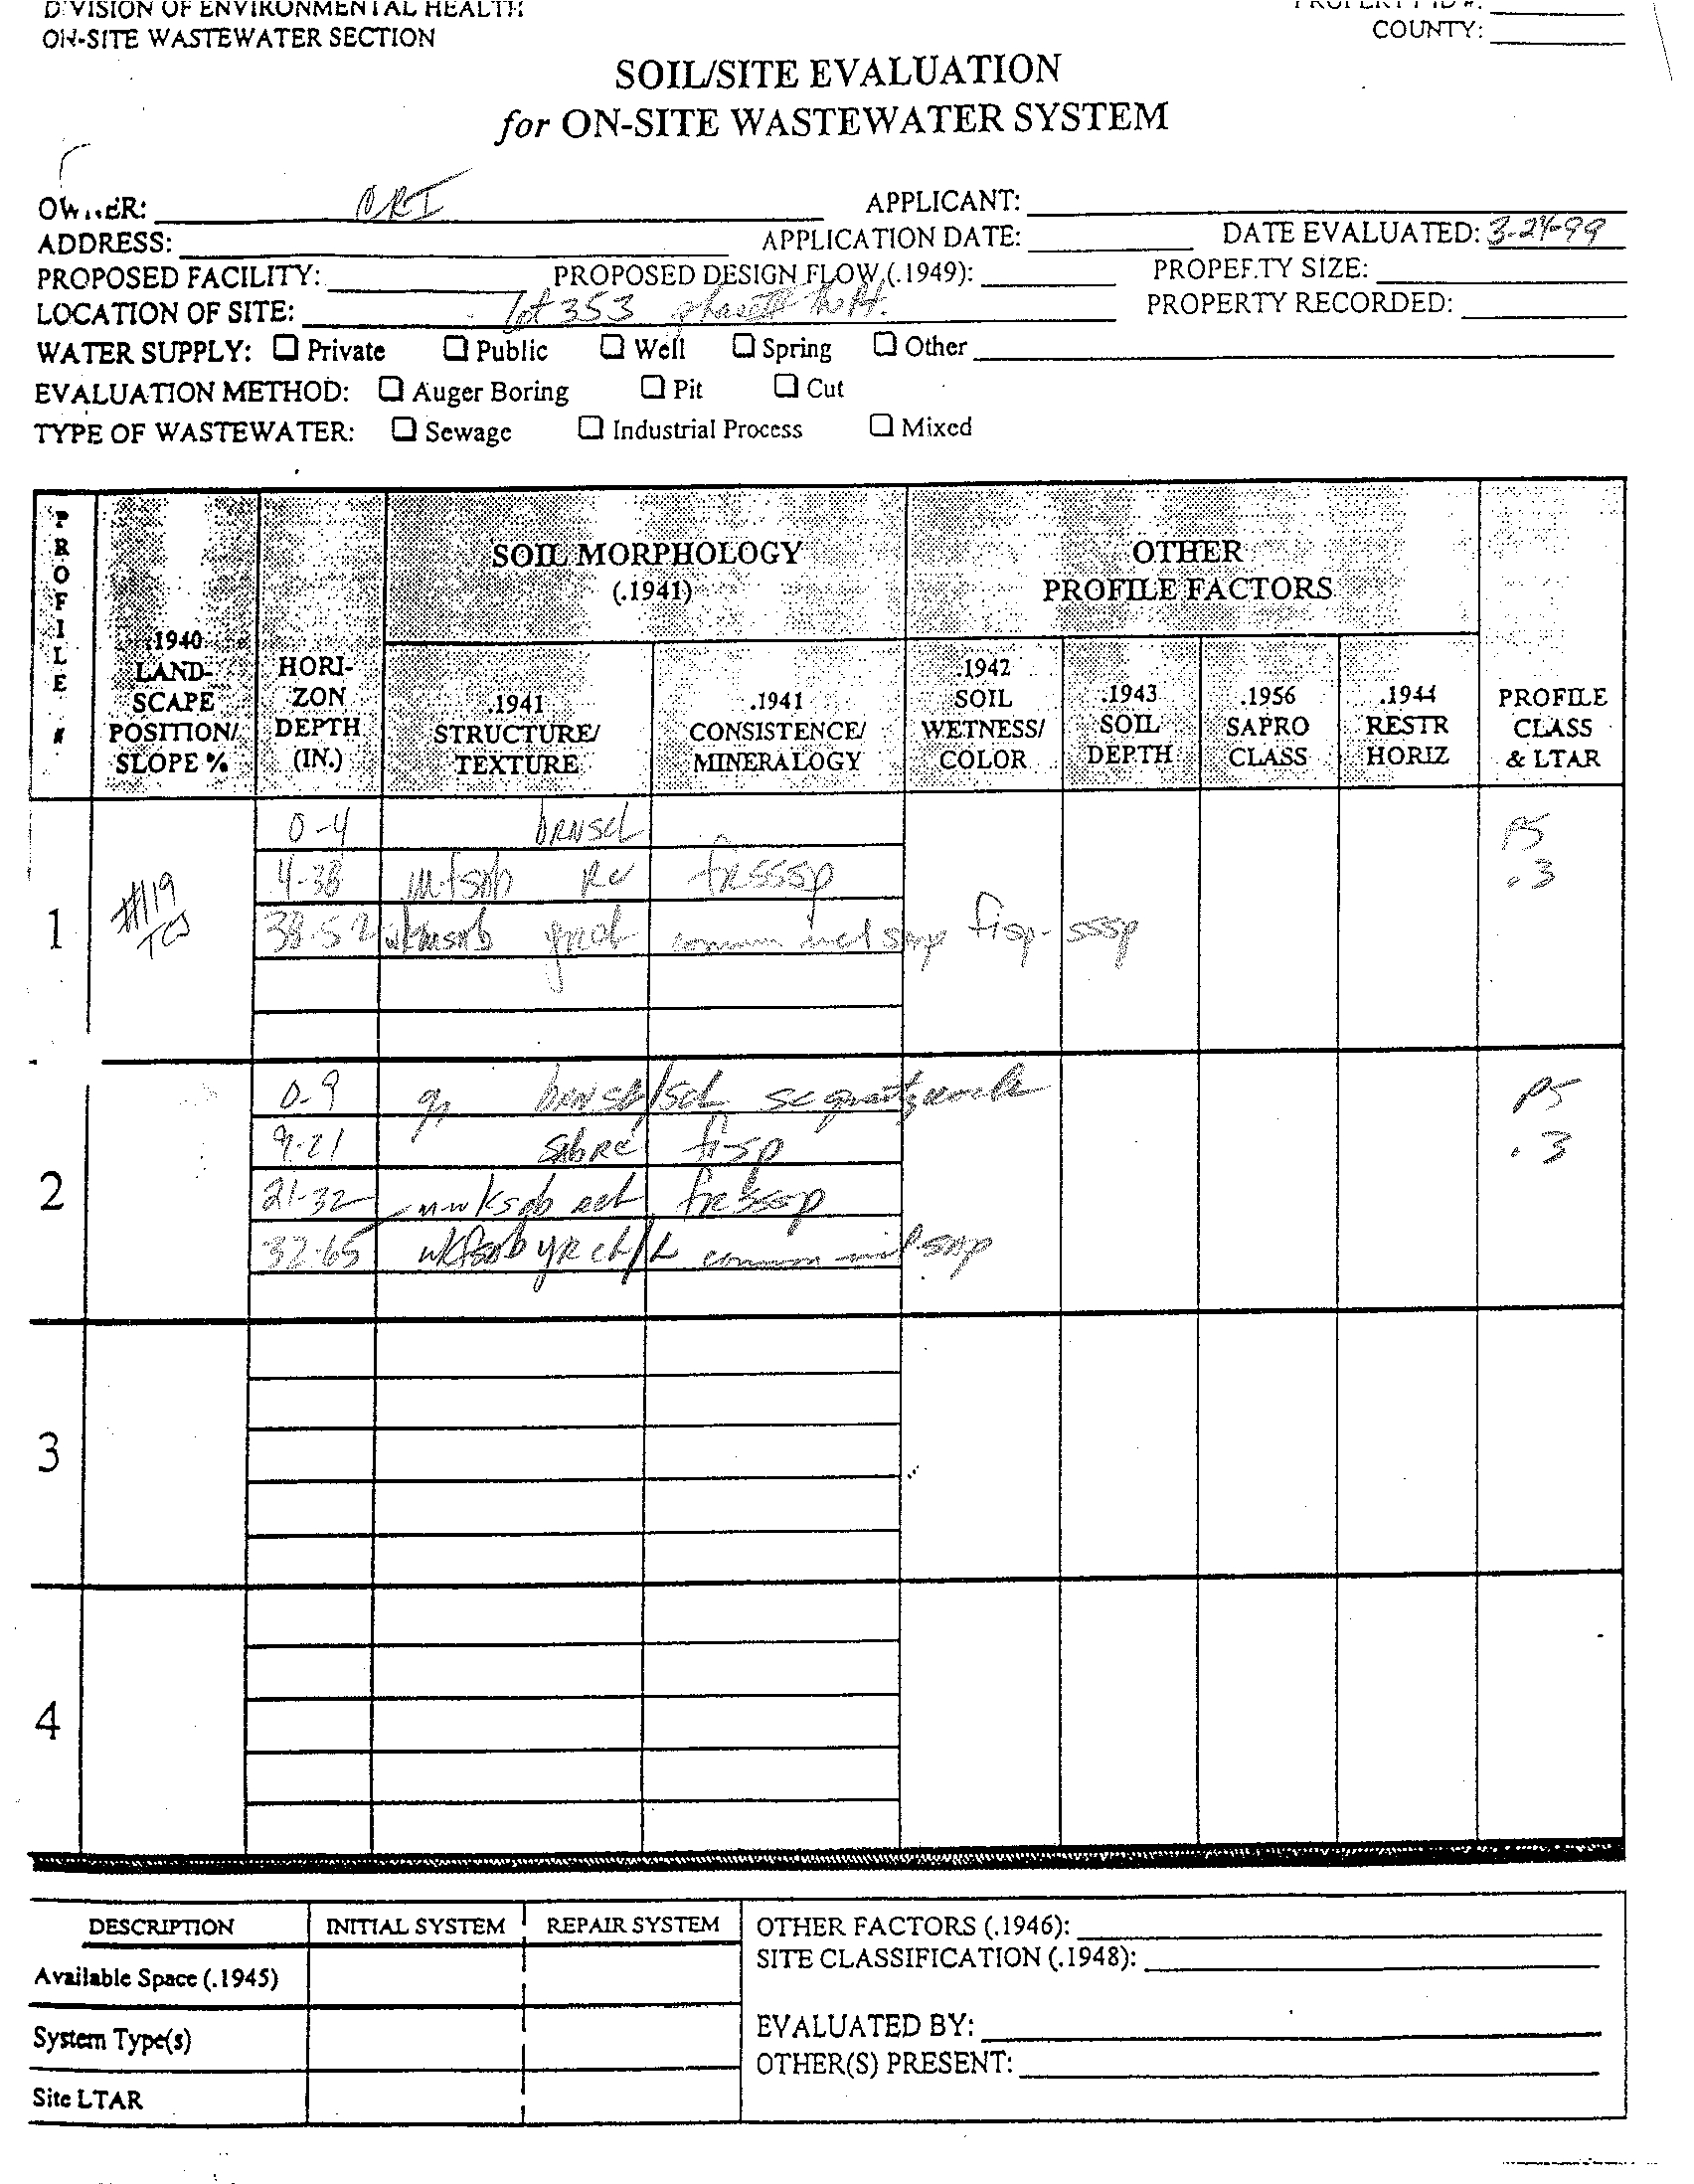 DIVISION OF ENVIRONMENTAL HEALTH
ON-SITE WASTEWATER SECTION
COUNTY:
SOIL/SITE EVALUATION
for ON-SITE WASTEWATER SYSTEM
OWNER: APPLICANT:
ADDRESS: APPLICATION DATE: DATE EVALUATED: 3-24-99
PROPOSED FACILITY: PROPOSED DESIGN FLOW (.1949): PROPERTY SIZE:
LOCATION OF SITE: lot 353 PROPERTY RECORDED:
WATER SUPPLY: Private Public Well Spring Other
EVALUATION METHOD: Auger Boring Pit Cut
TYPE OF WASTEWATER: Sewage Industrial Process Mixed
PROFILE #
.1940 LAND-SCAPE POSITION/ SLOPE %
HORI-ZON DEPTH (IN.)
SOIL MORPHOLOGY
(.1941)
.1941 STRUCTURE/ TEXTURE
.1941 CONSISTENCE/ MINERALOGY
OTHER
PROFILE FACTORS
.1942 SOIL WETNESS/ COLOR
.1943 SOIL DEPTH
.1956 SAPRO CLASS
.1944 RESTR HORIZ
PROFILE CLASS & LTAR
1
#119
0-4 brnscl PS
4-38 frsssp .3
38-52 sssp
2
0-9 PS
9-21 fi-sp .3
21-32
32-65
3
4
DESCRIPTION INITIAL SYSTEM REPAIR SYSTEM
Available Space (.1945)
System Type(s)
Site LTAR
OTHER FACTORS (.1946):
SITE CLASSIFICATION (.1948):
EVALUATED BY:
OTHER(S) PRESENT: